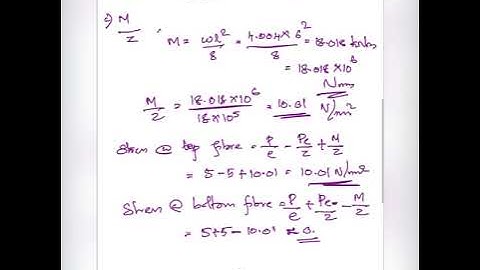 c) M/Z ∴ M = ωl²/8 = 4.004×6²/8 = 18.018 kNm
= 18.018×10⁶ Nmm
M/Z = 18.018×10⁶/18×10⁵ = 10.01 N/mm²
Stress @ top fibre = P/e − Pe/Z + M/Z
= 5−5+10.01 = 10.01 N/mm²
Stress @ bottom fibre = P/e + Pe/Z − M/Z
= 5+5−10.01 ≈ 0.